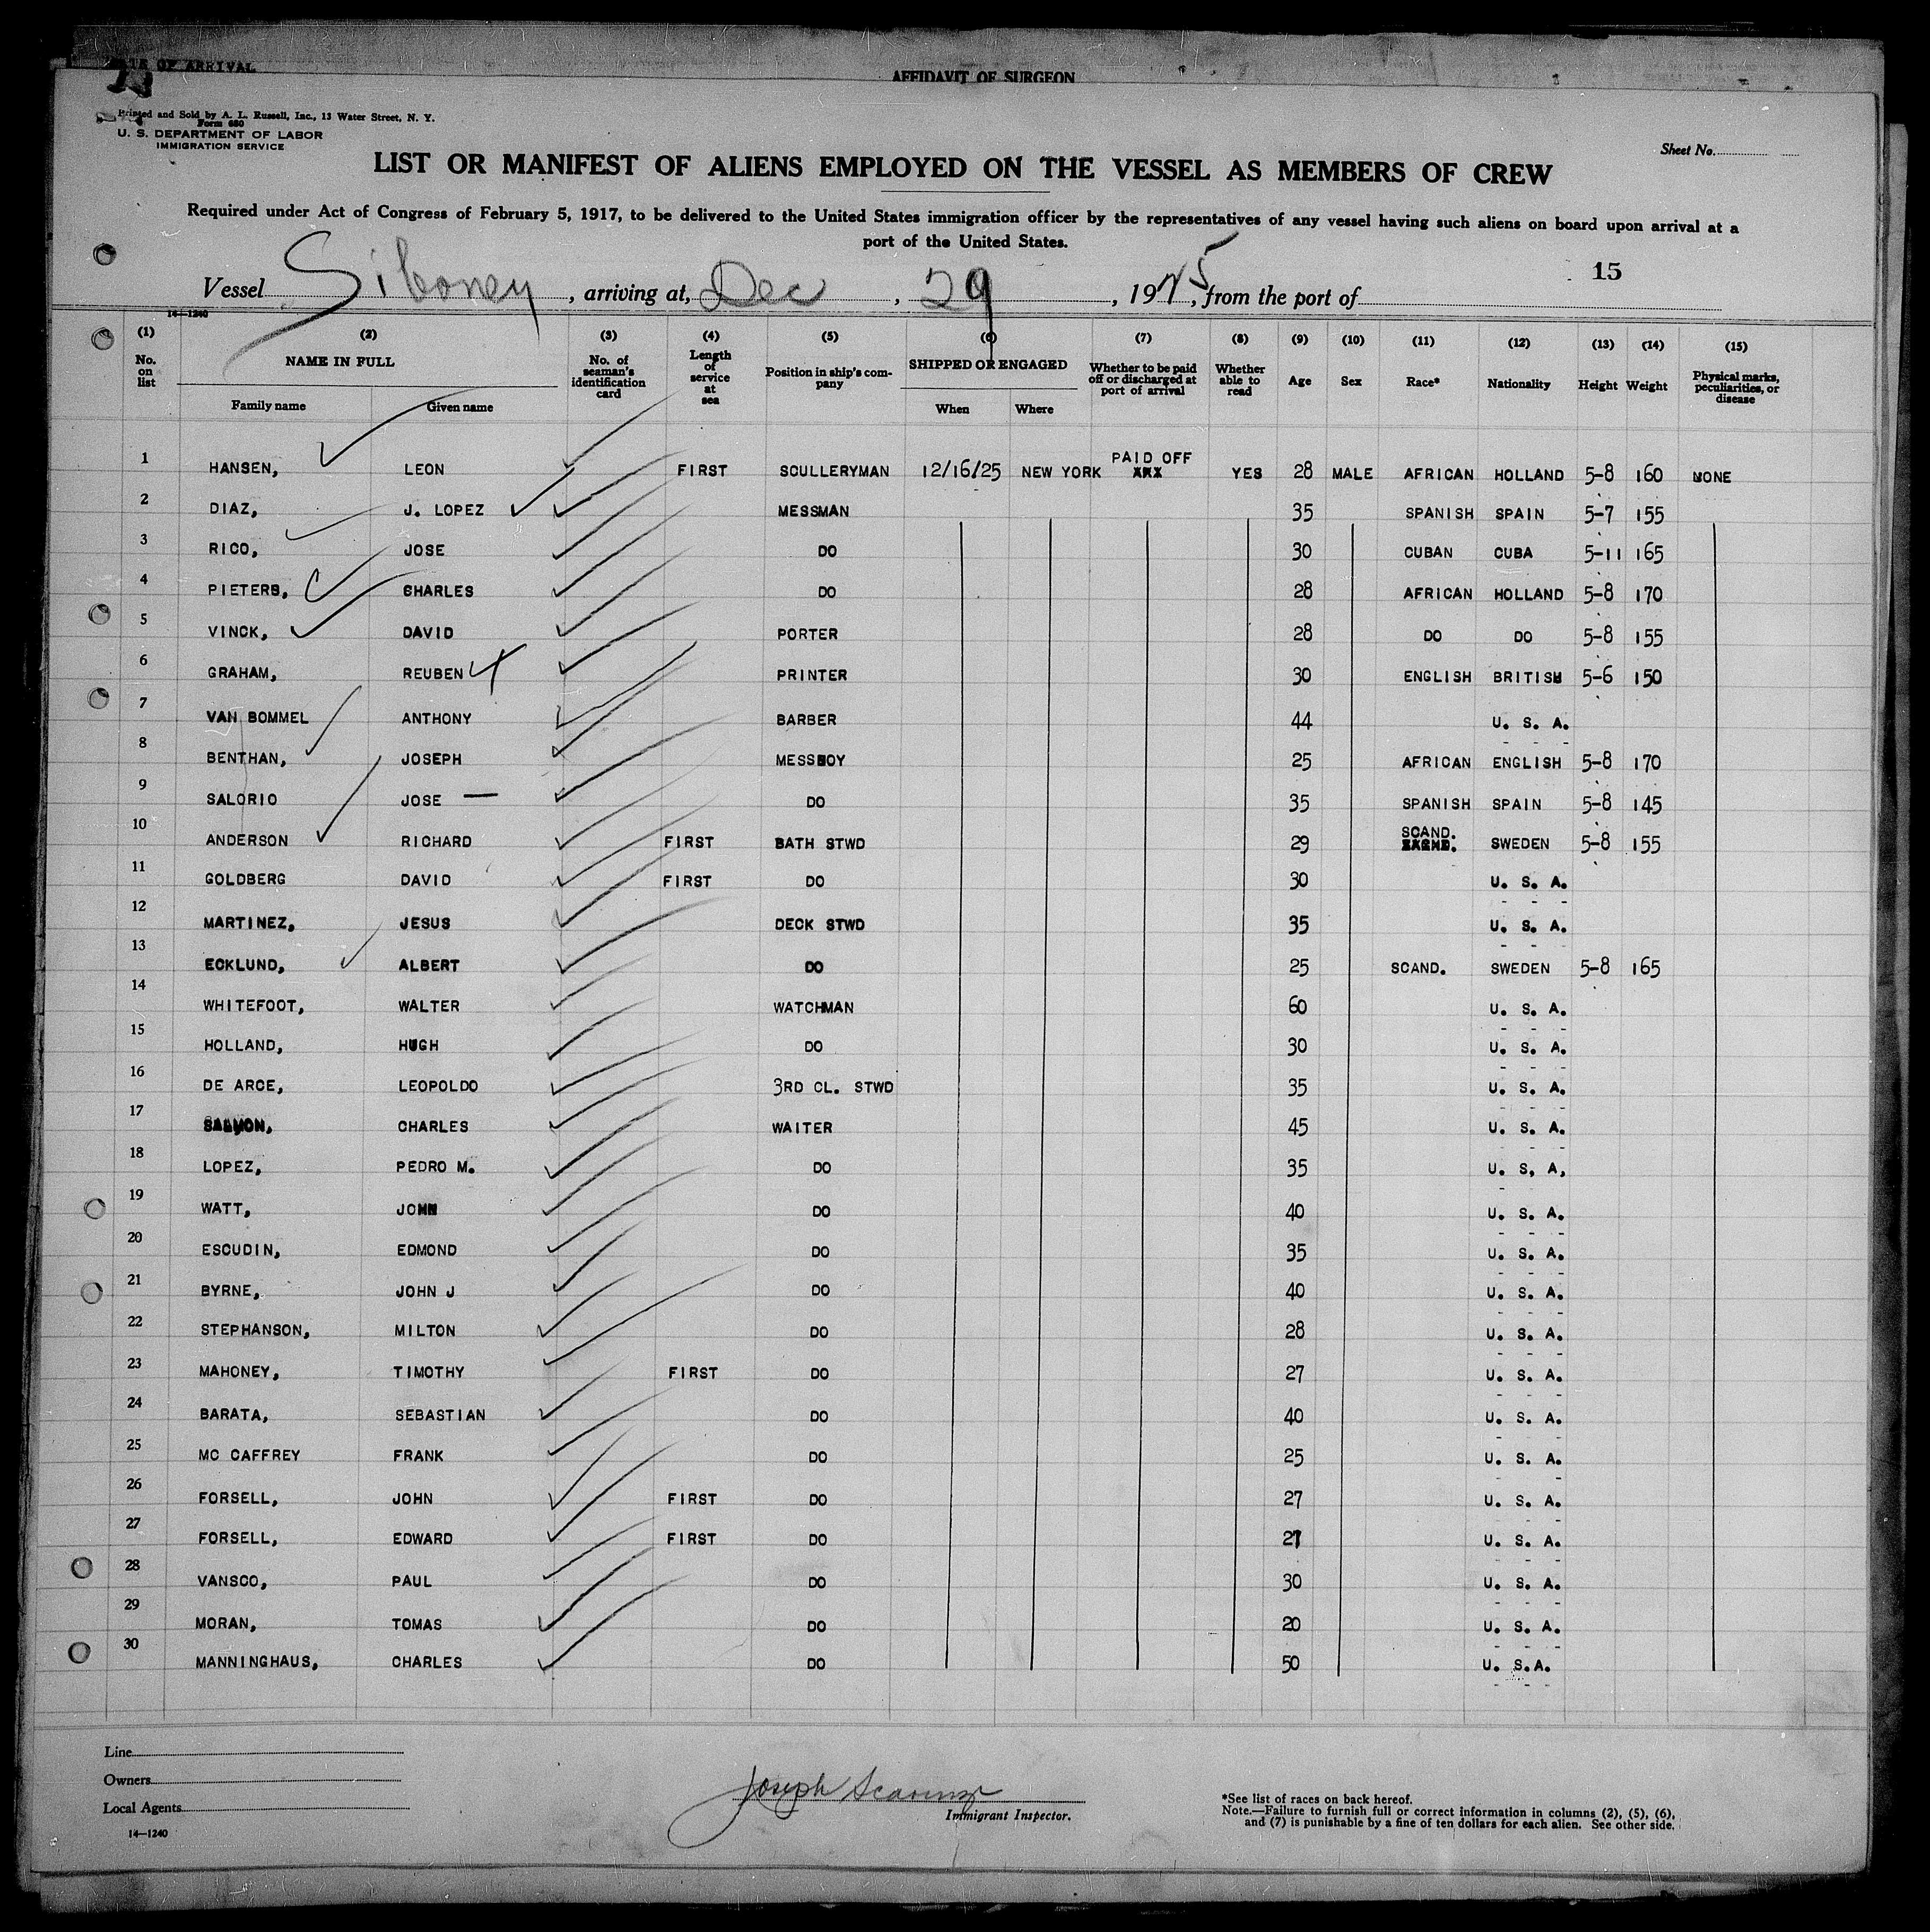 DATE OF ARRIVAL
AFFIDAVIT OF SURGEON
Printed and Sold by A. L. Russell, Inc., 13 Water Street, N. Y.
Form 680
U. S. DEPARTMENT OF LABOR
IMMIGRATION SERVICE
Sheet No.
LIST OR MANIFEST OF ALIENS EMPLOYED ON THE VESSEL AS MEMBERS OF CREW
Required under Act of Congress of February 5, 1917, to be delivered to the United States immigration officer by the representatives of any vessel having such aliens on board upon arrival at a
port of the United States.
15
Vessel Siboney, arriving at, Dec, 29, 1925, from the port of
14—1240
(1) (2) (3) (4) (5) (6) (7) (8) (9) (10) (11) (12) (13) (14) (15)
No. on list NAME IN FULL Family name Given name No. of seaman's identification card Length of service at sea Position in ship's company SHIPPED OR ENGAGED When Where Whether to be paid off or discharged at port of arrival Whether able to read Age Sex Race* Nationality Height Weight Physical marks, peculiarities, or disease
1 HANSEN, LEON FIRST SCULLERYMAN 12/16/25 NEW YORK PAID OFF YES 28 MALE AFRICAN HOLLAND 5-8 160 NONE
2 DIAZ, J. LOPEZ MESSMAN 35 SPANISH SPAIN 5-7 155
3 RICO, JOSE DO 30 CUBAN CUBA 5-11 165
4 PIETERS, CHARLES DO 28 AFRICAN HOLLAND 5-8 170
5 VINCK, DAVID PORTER 28 DO DO 5-8 155
6 GRAHAM, REUBEN PRINTER 30 ENGLISH BRITISH 5-6 150
7 VAN BOMMEL ANTHONY BARBER 44 U. S. A.
8 BENTHAN, JOSEPH MESSBOY 25 AFRICAN ENGLISH 5-8 170
9 SALORIO JOSE — DO 35 SPANISH SPAIN 5-8 145
10 ANDERSON RICHARD FIRST BATH STWD 29 SCAND. SWEDEN 5-8 155
11 GOLDBERG DAVID FIRST DO 30 U. S. A.
12 MARTINEZ, JESUS DECK STWD 35 U. S. A.
13 ECKLUND, ALBERT DO 25 SCAND. SWEDEN 5-8 165
14 WHITEFOOT, WALTER WATCHMAN 60 U. S. A.
15 HOLLAND, HUGH DO 30 U. S. A.
16 DE ARCE, LEOPOLDO 3RD CL. STWD 35 U. S. A.
17 SALMON, CHARLES WAITER 45 U. S. A.
18 LOPEZ, PEDRO M. DO 35 U. S, A,
19 WATT, JOHN DO 40 U. S. A.
20 ESCUDIN, EDMOND DO 35 U. S. A.
21 BYRNE, JOHN J DO 40 U. S. A.
22 STEPHANSON, MILTON DO 28 U. S. A.
23 MAHONEY, TIMOTHY FIRST DO 27 U. S. A.
24 BARATA, SEBASTIAN DO 40 U. S. A.
25 MC CAFFREY FRANK DO 25 U. S. A.
26 FORSELL, JOHN FIRST DO 27 U. S. A.
27 FORSELL, EDWARD FIRST DO 21 U. S. A.
28 VANSCO, PAUL DO 30 U. S. A.
29 MORAN, TOMAS DO 20 U. S. A.
30 MANNINGHAUS, CHARLES DO 50 U. S.A.
Line
Owners
Local Agents
14—1240
Joseph
Immigrant Inspector.
*See list of races on back hereof.
Note.—Failure to furnish full or correct information in columns (2), (5), (6),
and (7) is punishable by a fine of ten dollars for each alien. See other side.